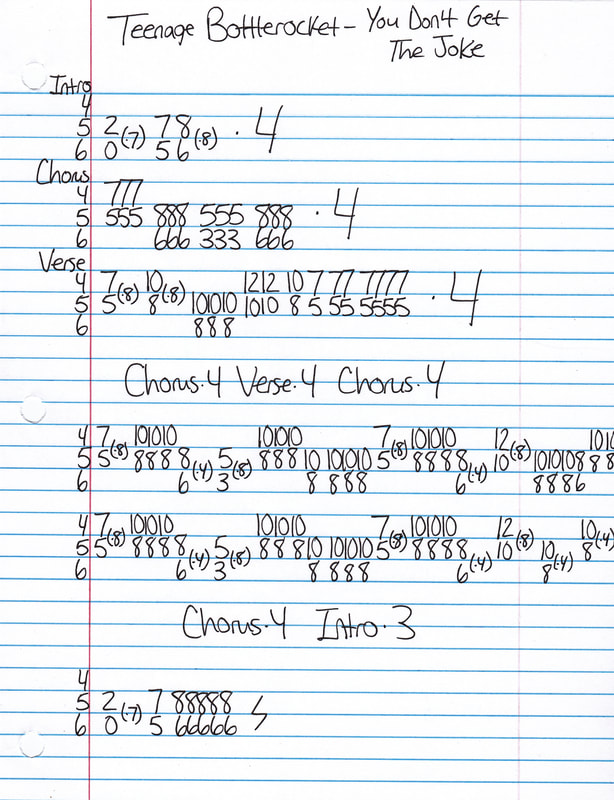 Teenage Bottlerocket - You Don't Get
The Joke
Intro
4
5 2(·7) 7 8(·8) · 4
6 0 5 6
Chorus
4 777
5 555 888 555 888 · 4
6 666 333 666
Verse
4 7(·8) 10(·8) 1212 10 7 77 7777
5 5 8 1010 10 1010 8 5 55 5555 · 4
6 8 8 8
Chorus·4 Verse·4 Chorus·4
4 7(·8) 101010 101010 7(·8) 101010 12(·8) 1010
5 5 888 8(·4) 5(·8) 888 10 101010 5 888 8(·4) 10 1010108 88
6 6 3 8 888 6 8886
4 7(·8) 101010 101010 7(·8) 101010 12(·8) 10(·4)
5 5 888 8(·4) 5(·8) 888 10 101010 5 888 8(·4) 10 10(·4) 8
6 6 3 8 888 6 8
Chorus·4 Intro·3
4
5 2(·7) 7 88888
6 0 5 66666